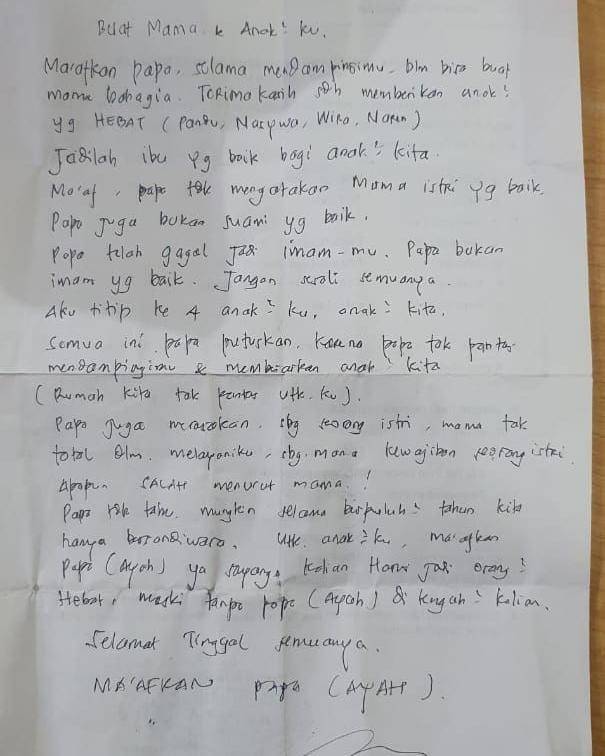 Buat Mama & Anak² ku.
Ma'afkan papa, selama mendampingimu blm bisa buat
mama bahagia. Terima kasih sdh memberikan anak²
yg HEBAT ( Pandu, Nasywa, Wira, )
Jadilah ibu yg baik bagi anak² kita.
Ma'af, papa tdk mengatakan Mama istri yg baik.
Papa juga bukan suami yg baik.
Papa telah gagal jadi imam-mu. Papa bukan
imam yg baik. Jangan sesali semuanya.
Aku titip ke 4 anak² ku, anak² kita.
Semua ini papa putuskan, karena papa tak pantas
mendampingimu & membesarkan anak² kita
( Rumah kita tak pantas utk. ku ).
Papa juga merasakan, sbg seorang istri, mama tak
total dlm. melayaniku, sbg. mana kewajiban seorang istri.
Apapun SALAH menurut mama !
Papa tdk tahu, mungkin selama berpuluh² tahun kita
hanya bersandiwara. Utk. anak² ku, ma'afkan
Papa (Ayah) ya sayang, kalian Harus jadi orang²
Hebat, meski tanpa papa (Ayah) di tengah² kalian.
Selamat Tinggal semuanya.
MA'AFKAN papa (AYAH).